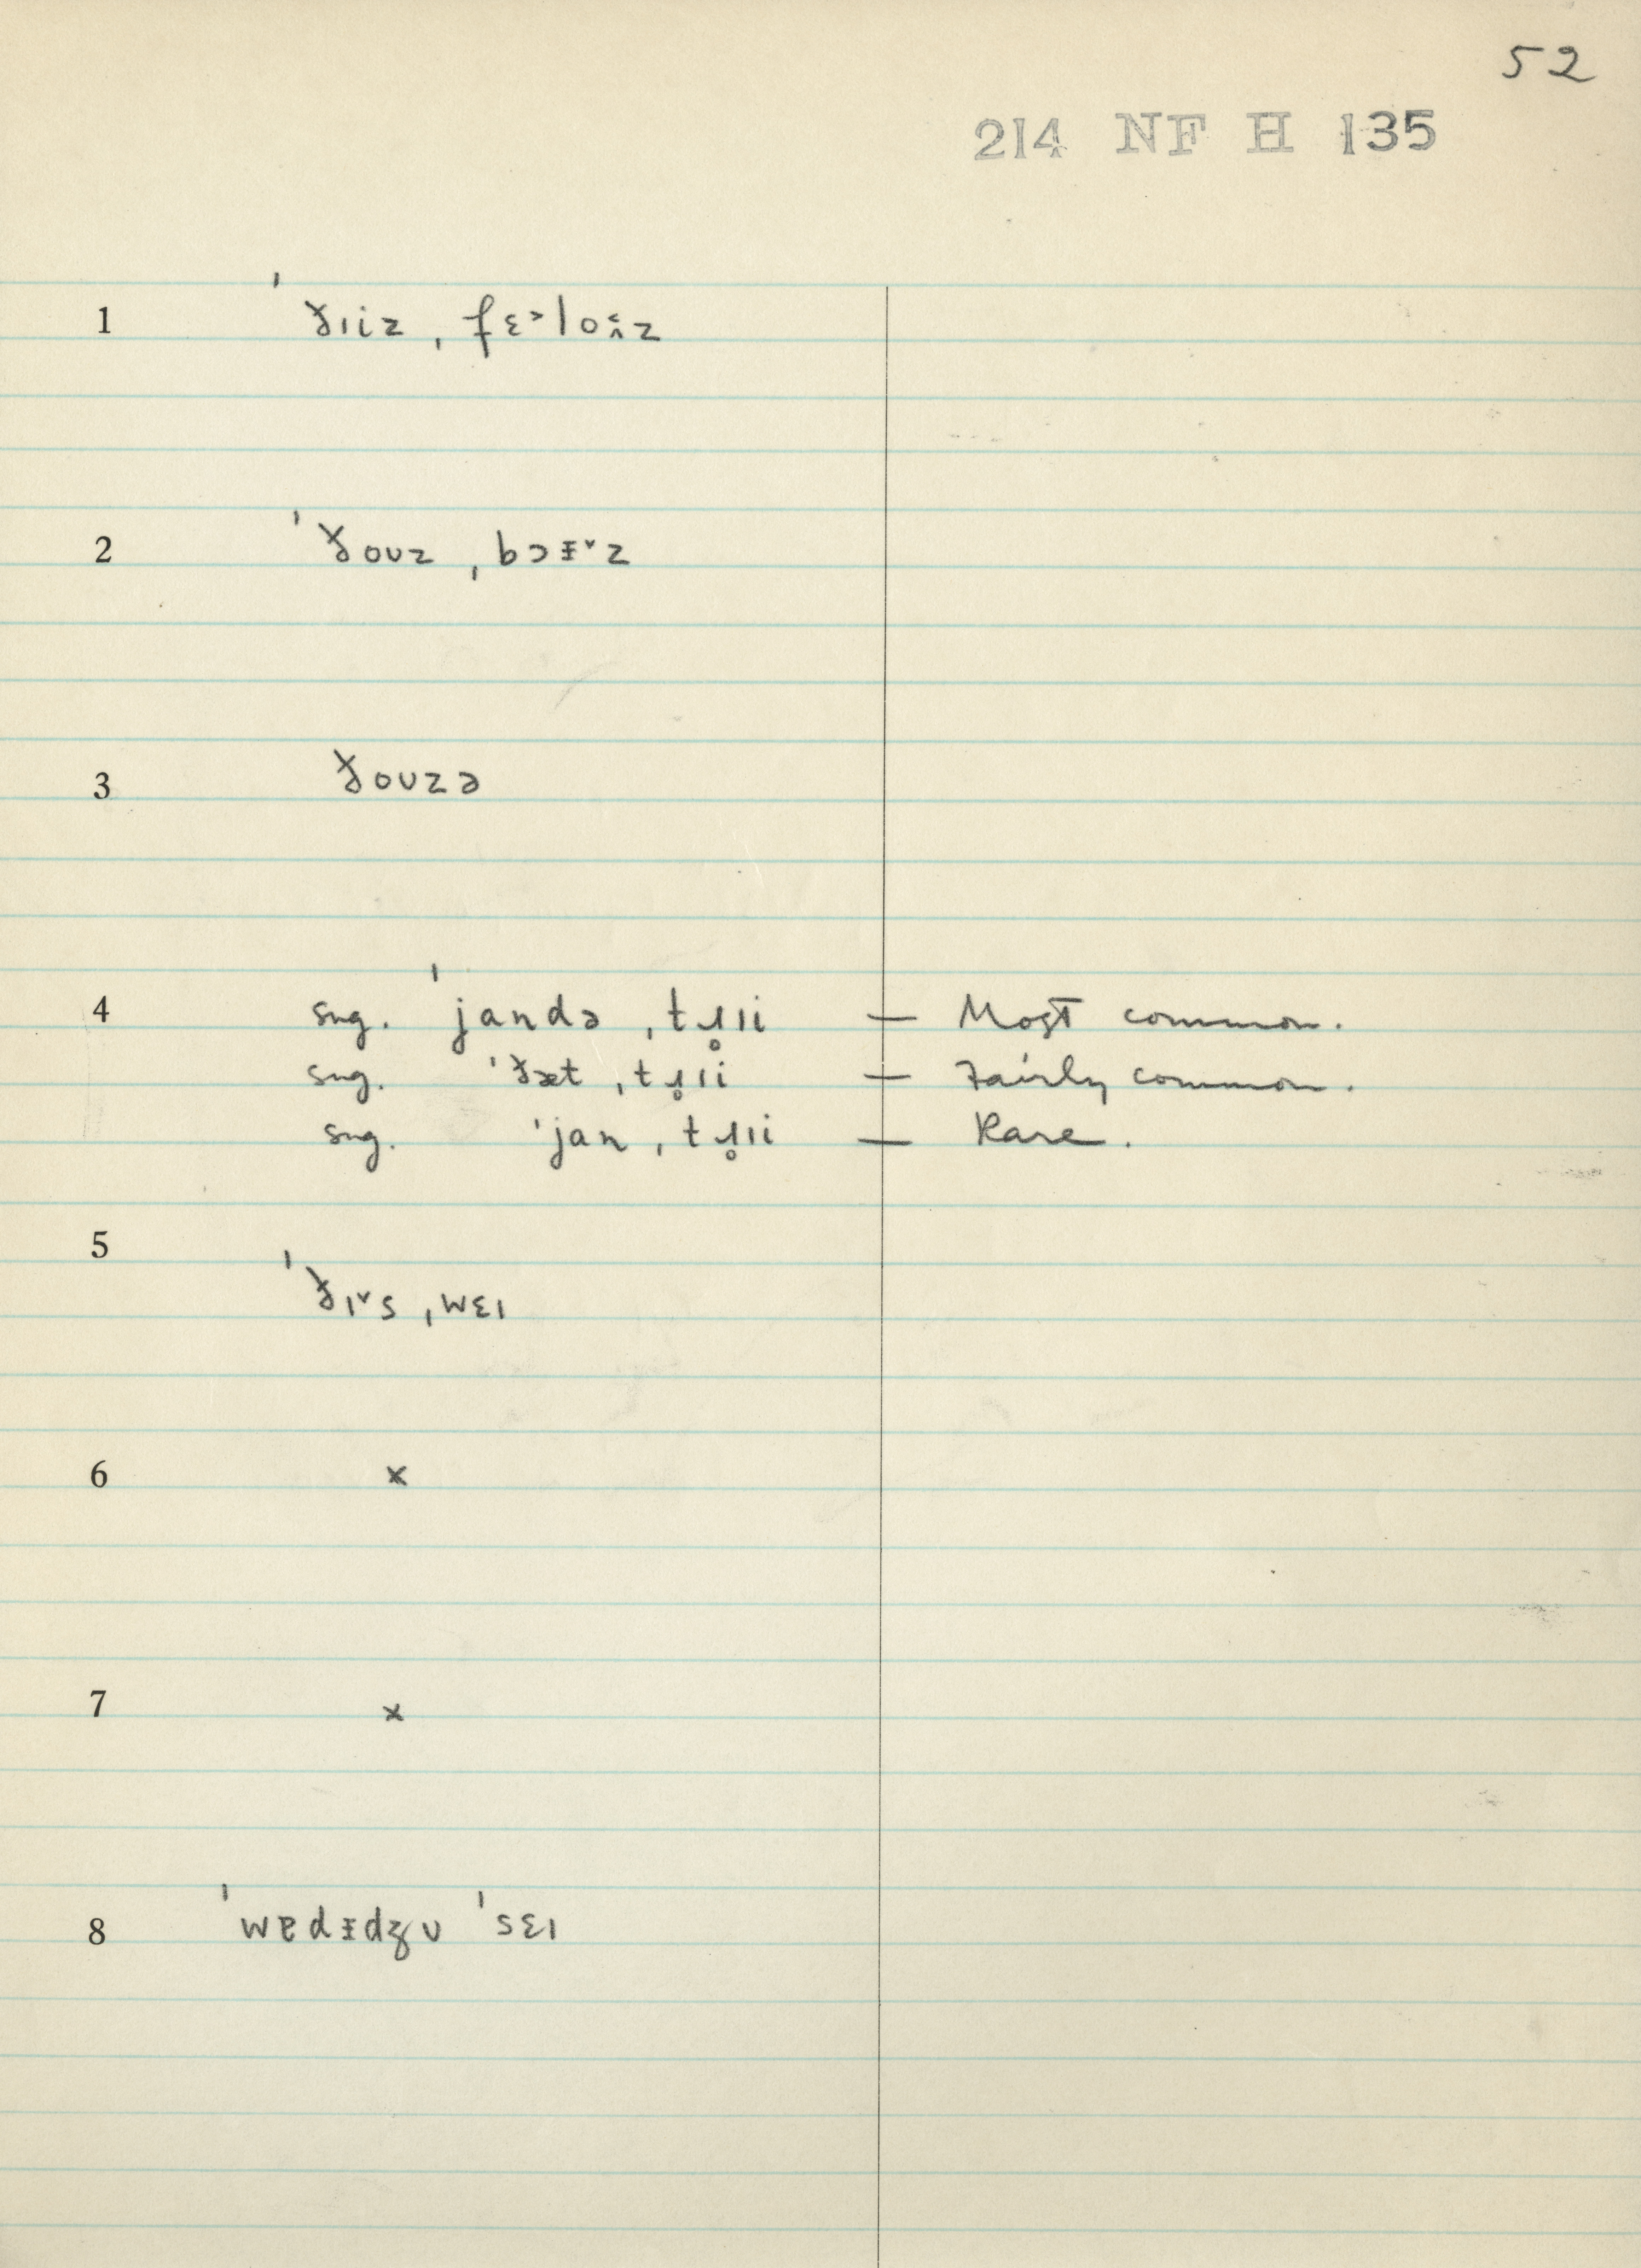 52
214 NF H 135
1 ˈðɪiz ˌfɛ˃loʌ̭z
2 ˈðoʊz ˌbɔɪ̵˅z
3 ðoʊzə
4 sng. ˈjandə ˌtɹ̥ɪi — Most common.
sng. ˈðæt ˌtɹ̥ɪi — Fairly common.
sng. ˈjan ˌtɹ̥ɪi — Rare.
5 ˈðɪ˅s ˌwɛɪ
6 ×
7 ×
8 ˈwɐdɪ̵dʒʊ ˈsɛɪ